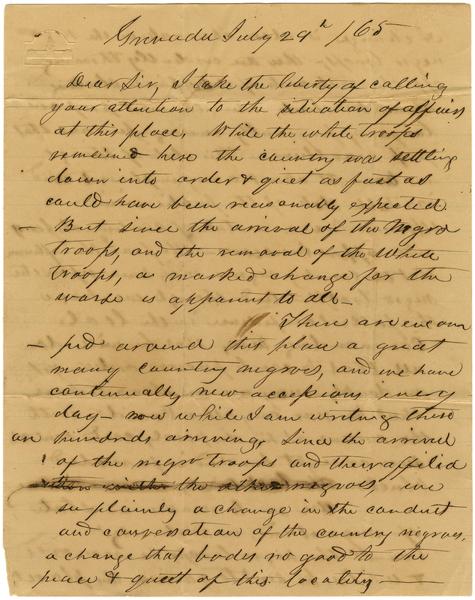 Grenada July 29th /65
Dear Sir, I take the liberty of calling
your attention to the situation of affairs
at this place. While the white troops
remained here the country was settling
down into order & quiet as fast as
could have been reasonably expected.
— But since the arrival of the Negro
troops, and the removal of the White
troops, a marked change for the
worse is apparent to all —
There are encam
— ped around this place a great
many country negroes, and we have
continually new accessions every
day — now while I am writing there
are hundreds arriving. Since the arrival
of the negro troops and their
the negroes, we
see plainly a change in the conduct
and conversation of the country negroes,
a change that bodes no good to the
peace & quiet of this locality —